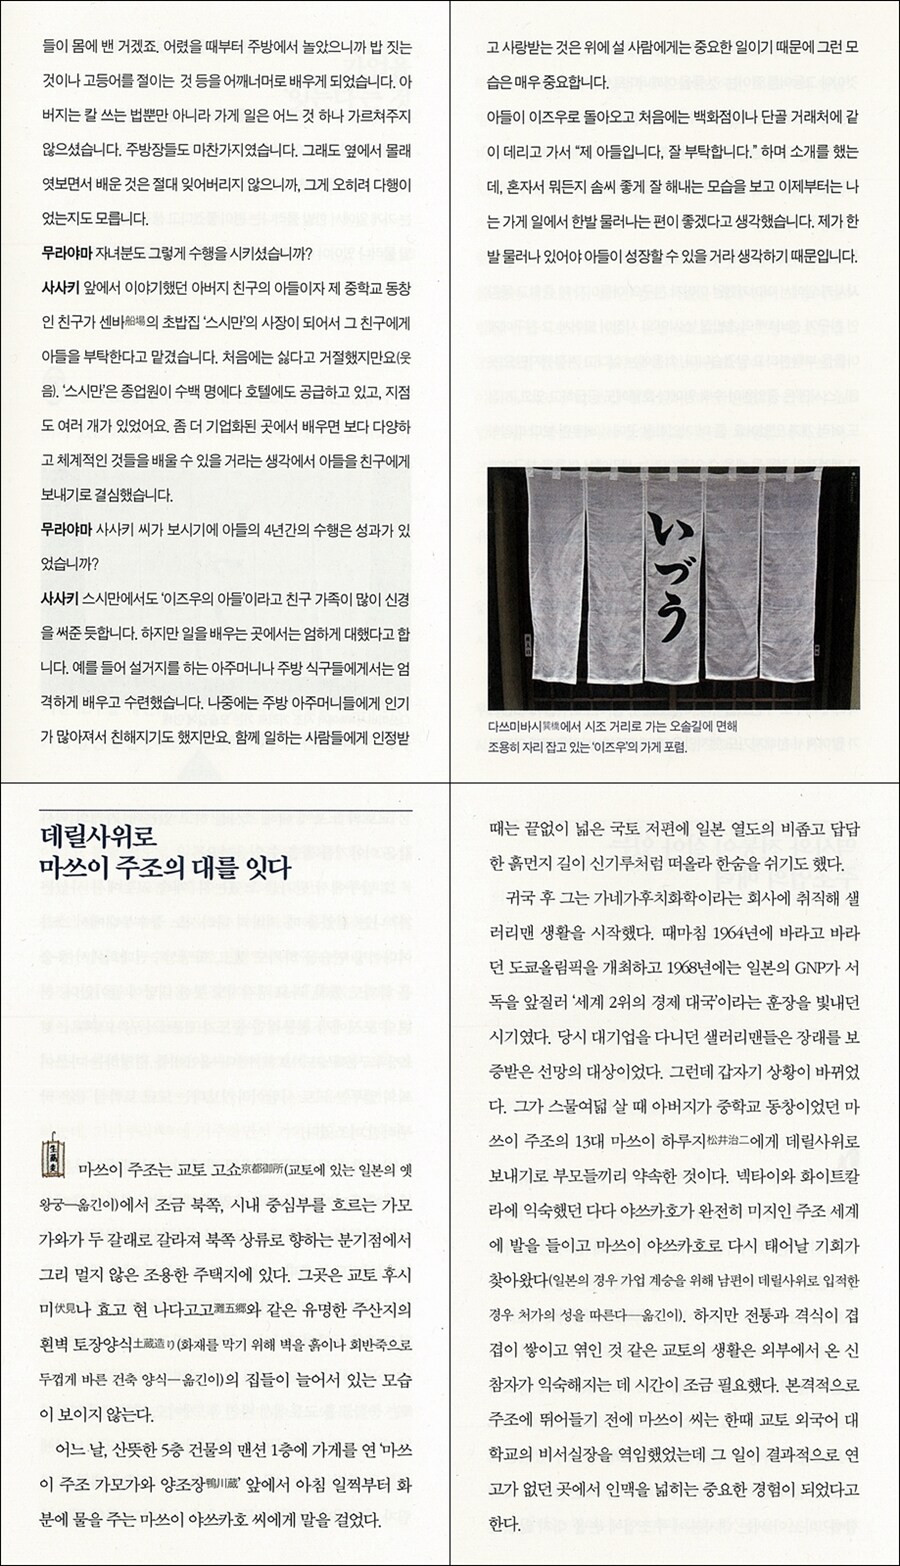 들이 몸에 밴 거겠죠. 어렸을 때부터 주방에서 놀았으니까 밥 짓는
것이나 고등어를 절이는 것 등을 어깨너머로 배우게 되었습니다. 아
버지는 칼 쓰는 법뿐만 아니라 가게 일은 어느 것 하나 가르쳐주지
않으셨습니다. 주방장들도 마찬가지였습니다. 그래도 옆에서 몰래
엿보면서 배운 것은 절대 잊어버리지 않으니까, 그게 오히려 다행이
었는지도 모릅니다.
무라야마 자녀분도 그렇게 수행을 시키셨습니까?
사사키 앞에서 이야기했던 아버지 친구의 아들이자 제 중학교 동창
인 친구가 센바船場의 초밥집 ‘스시만’의 사장이 되어서 그 친구에게
아들을 부탁한다고 맡겼습니다. 처음에는 싫다고 거절했지만요(웃
음). ‘스시만’은 종업원이 수백 명에다 호텔에도 공급하고 있고, 지점
도 여러 개가 있었어요. 좀 더 기업화된 곳에서 배우면 보다 다양하
고 체계적인 것들을 배울 수 있을 거라는 생각에서 아들을 친구에게
보내기로 결심했습니다.
무라야마 사사키 씨가 보시기에 아들의 4년간의 수행은 성과가 있
었습니까?
사사키 스시만에서도 ‘이즈우의 아들’이라고 친구 가족이 많이 신경
을 써준 듯합니다. 하지만 일을 배우는 곳에서는 엄하게 대했다고 합
니다. 예를 들어 설거지를 하는 아주머니나 주방 식구들에게서는 엄
격하게 배우고 수련했습니다. 나중에는 주방 아주머니들에게 인기
가 많아져서 친해지기도 했지만요. 함께 일하는 사람들에게 인정받
고 사랑받는 것은 위에 설 사람에게는 중요한 일이기 때문에 그런 모
습은 매우 중요합니다.
아들이 이즈우로 돌아오고 처음에는 백화점이나 단골 거래처에 같
이 데리고 가서 “제 아들입니다, 잘 부탁합니다.” 하며 소개를 했는
데, 혼자서 뭐든지 솜씨 좋게 잘 해내는 모습을 보고 이제부터는 나
는 가게 일에서 한발 물러나는 편이 좋겠다고 생각했습니다. 제가 한
발 물러나 있어야 아들이 성장할 수 있을 거라 생각하기 때문입니다.
いづう
다쓰미바시巽橋에서 시조 거리로 가는 오솔길에 면해
조용히 자리 잡고 있는 ‘이즈우’의 가게 포렴.
데릴사위로
마쓰이 주조의 대를 잇다
마쓰이 주조는 교토 고쇼京都御所(교토에 있는 일본의 옛
왕궁—옮긴이)에서 조금 북쪽, 시내 중심부를 흐르는 가모
가와가 두 갈래로 갈라져 북쪽 상류로 향하는 분기점에서
그리 멀지 않은 조용한 주택지에 있다. 그곳은 교토 후시
미伏見나 효고 현 나다고고灘五郷와 같은 유명한 주산지의
흰벽 토장양식土蔵造り(화재를 막기 위해 벽을 흙이나 회반죽으로
두껍게 바른 건축 양식—옮긴이)의 집들이 늘어서 있는 모습
이 보이지 않는다.
어느 날, 산뜻한 5층 건물의 맨션 1층에 가게를 연 ‘마쓰
이 주조 가모가와 양조장鴨川蔵’ 앞에서 아침 일찍부터 화
분에 물을 주는 마쓰이 야쓰카호 씨에게 말을 걸었다.
때는 끝없이 넓은 국토 저편에 일본 열도의 비좁고 답답
한 흙먼지 길이 신기루처럼 떠올라 한숨을 쉬기도 했다.
귀국 후 그는 가네가후치화학이라는 회사에 취직해 샐
러리맨 생활을 시작했다. 때마침 1964년에 바라고 바라
던 도쿄올림픽을 개최하고 1968년에는 일본의 GNP가 서
독을 앞질러 ‘세계 2위의 경제 대국’이라는 훈장을 빛내던
시기였다. 당시 대기업을 다니던 샐러리맨들은 장래를 보
증받은 선망의 대상이었다. 그런데 갑자기 상황이 바뀌었
다. 그가 스물여덟 살 때 아버지가 중학교 동창이었던 마
쓰이 주조의 13대 마쓰이 하루지松井治二에게 데릴사위로
보내기로 부모들끼리 약속한 것이다. 넥타이와 화이트칼
라에 익숙했던 다다 야쓰카호가 완전히 미지인 주조 세계
에 발을 들이고 마쓰이 야쓰카호로 다시 태어날 기회가
찾아왔다(일본의 경우 가업 계승을 위해 남편이 데릴사위로 입적한
경우 처가의 성을 따른다—옮긴이). 하지만 전통과 격식이 겹
겹이 쌓이고 엮인 것 같은 교토의 생활은 외부에서 온 신
참자가 익숙해지는 데 시간이 조금 필요했다. 본격적으로
주조에 뛰어들기 전에 마쓰이 씨는 한때 교토 외국어 대
학교의 비서실장을 역임했었는데 그 일이 결과적으로 연
고가 없던 곳에서 인맥을 넓히는 중요한 경험이 되었다고
한다.